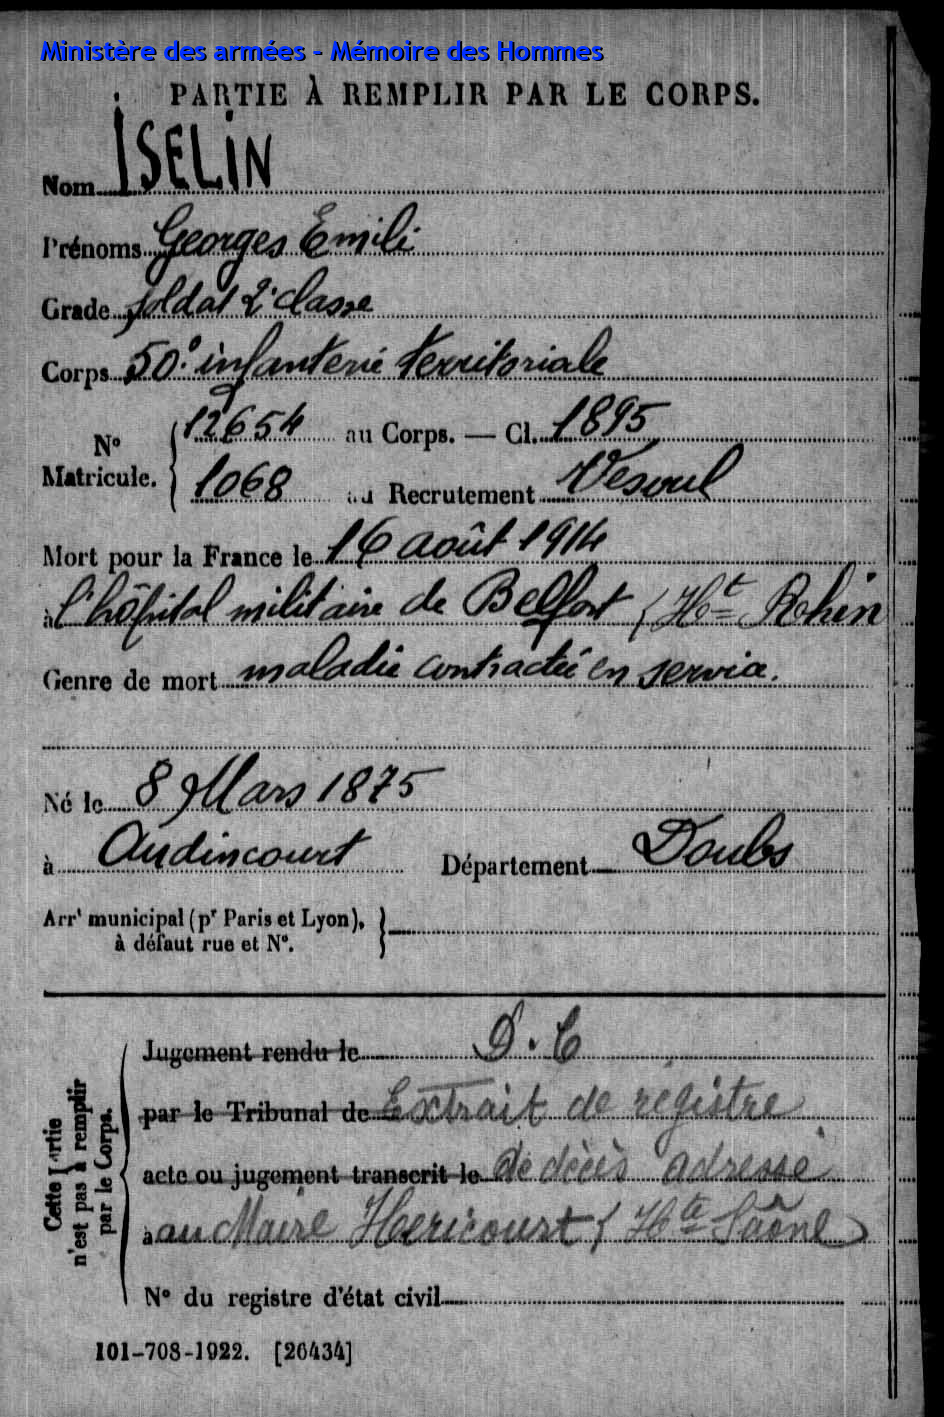 Ministère des armées - Mémoire des Hommes
PARTIE À REMPLIR PAR LE CORPS.
Nom ISELIN
Prénoms Georges Emile
Grade soldat 2e classe
Corps 50e infanterie territoriale
N° Matricule. { 12654 au Corps. — Cl. 1895
1068 au Recrutement Vesoul
Mort pour la France le 16 août 1914
à l'hôpital militaire de Belfort (Ht Rhin
Genre de mort maladie contractée en service.
Né le 8 Mars 1875
à Audincourt Département Doubs
Arrt municipal (pr Paris et Lyon), à défaut rue et N°. }
Cette partie n'est pas à remplir par le Corps.
Jugement rendu le D. C
par le Tribunal de Extrait de registre
acte ou jugement transcrit le de décès adressé
à au Maire Hericourt (Hte Saône)
N° du registre d'état civil
101-708-1922. [26434]